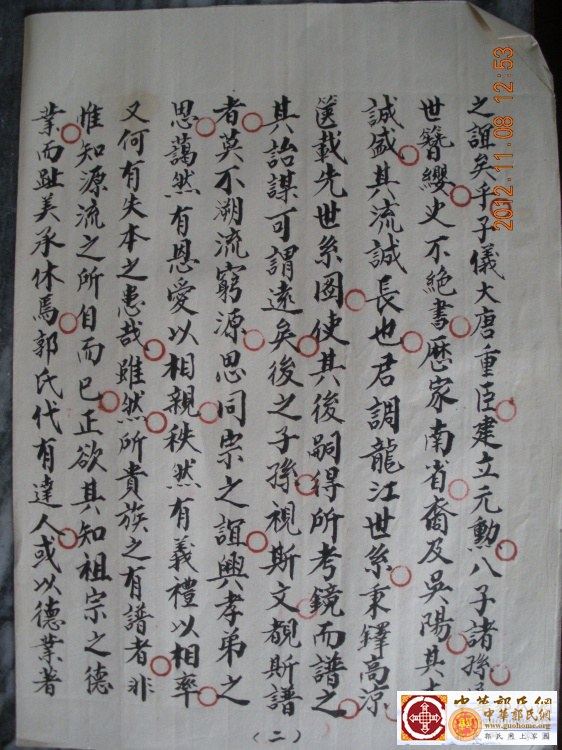 之誼矣乎子儀大唐重臣建立元勳八子諸孫
世簪纓史不絕書歷家南省裔及吳陽其
誠盛其流誠長也君調龍江世系秉鐸高凉
篋載先世系圖使其後嗣得所考鏡而譜之
其詒謀可謂遠矣後之子孫視斯文覩斯譜
者莫不溯流窮源思同宗之誼興孝弟之
思藹然有恩愛以相親秩然有義禮以相率
又何有失本之患哉雖然所貴族之有譜者非
惟知源流之所自而已正欲其知祖宗之德
業而趾美承休焉郭氏代有達人或以德業著
(二)
2012.11.08 12:53
中華郭氏網
www.guohome.org
郭氏網上家園